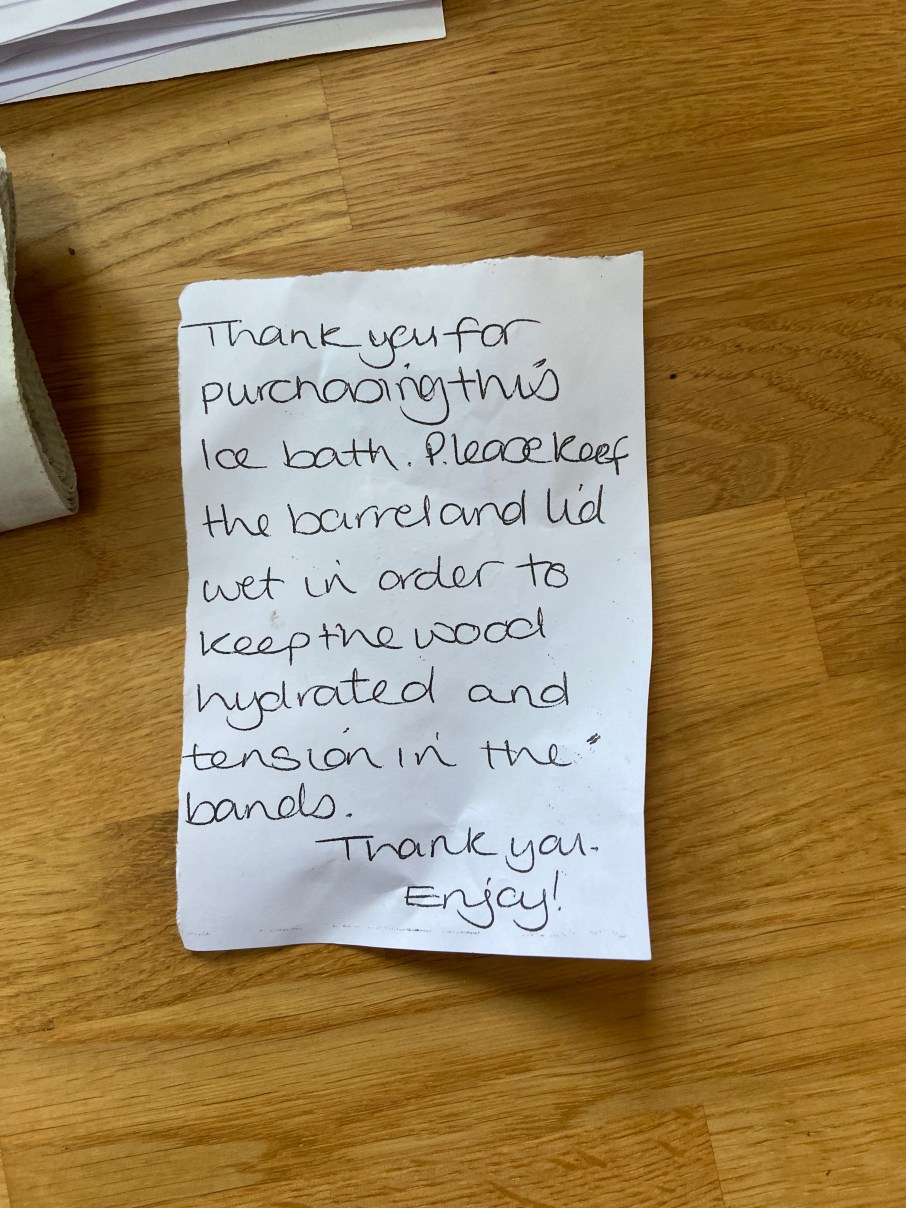 Thank you for
purchasing this
Ice bath. Please keep
the barrel and lid
wet in order to
keep the wood
hydrated and
tension in the
bands.
Thank you.
Enjoy!